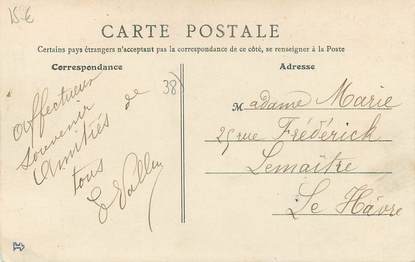 15 €
CARTE POSTALE
Certains pays étrangers n'acceptant pas la correspondance de ce côté, se renseigner à la Poste
Correspondance
Adresse
38)
Affectueux
souvenir
Amitiés de
tous
Madame Marie
25 rue Frédérick
Lemaître
Le Hâvre